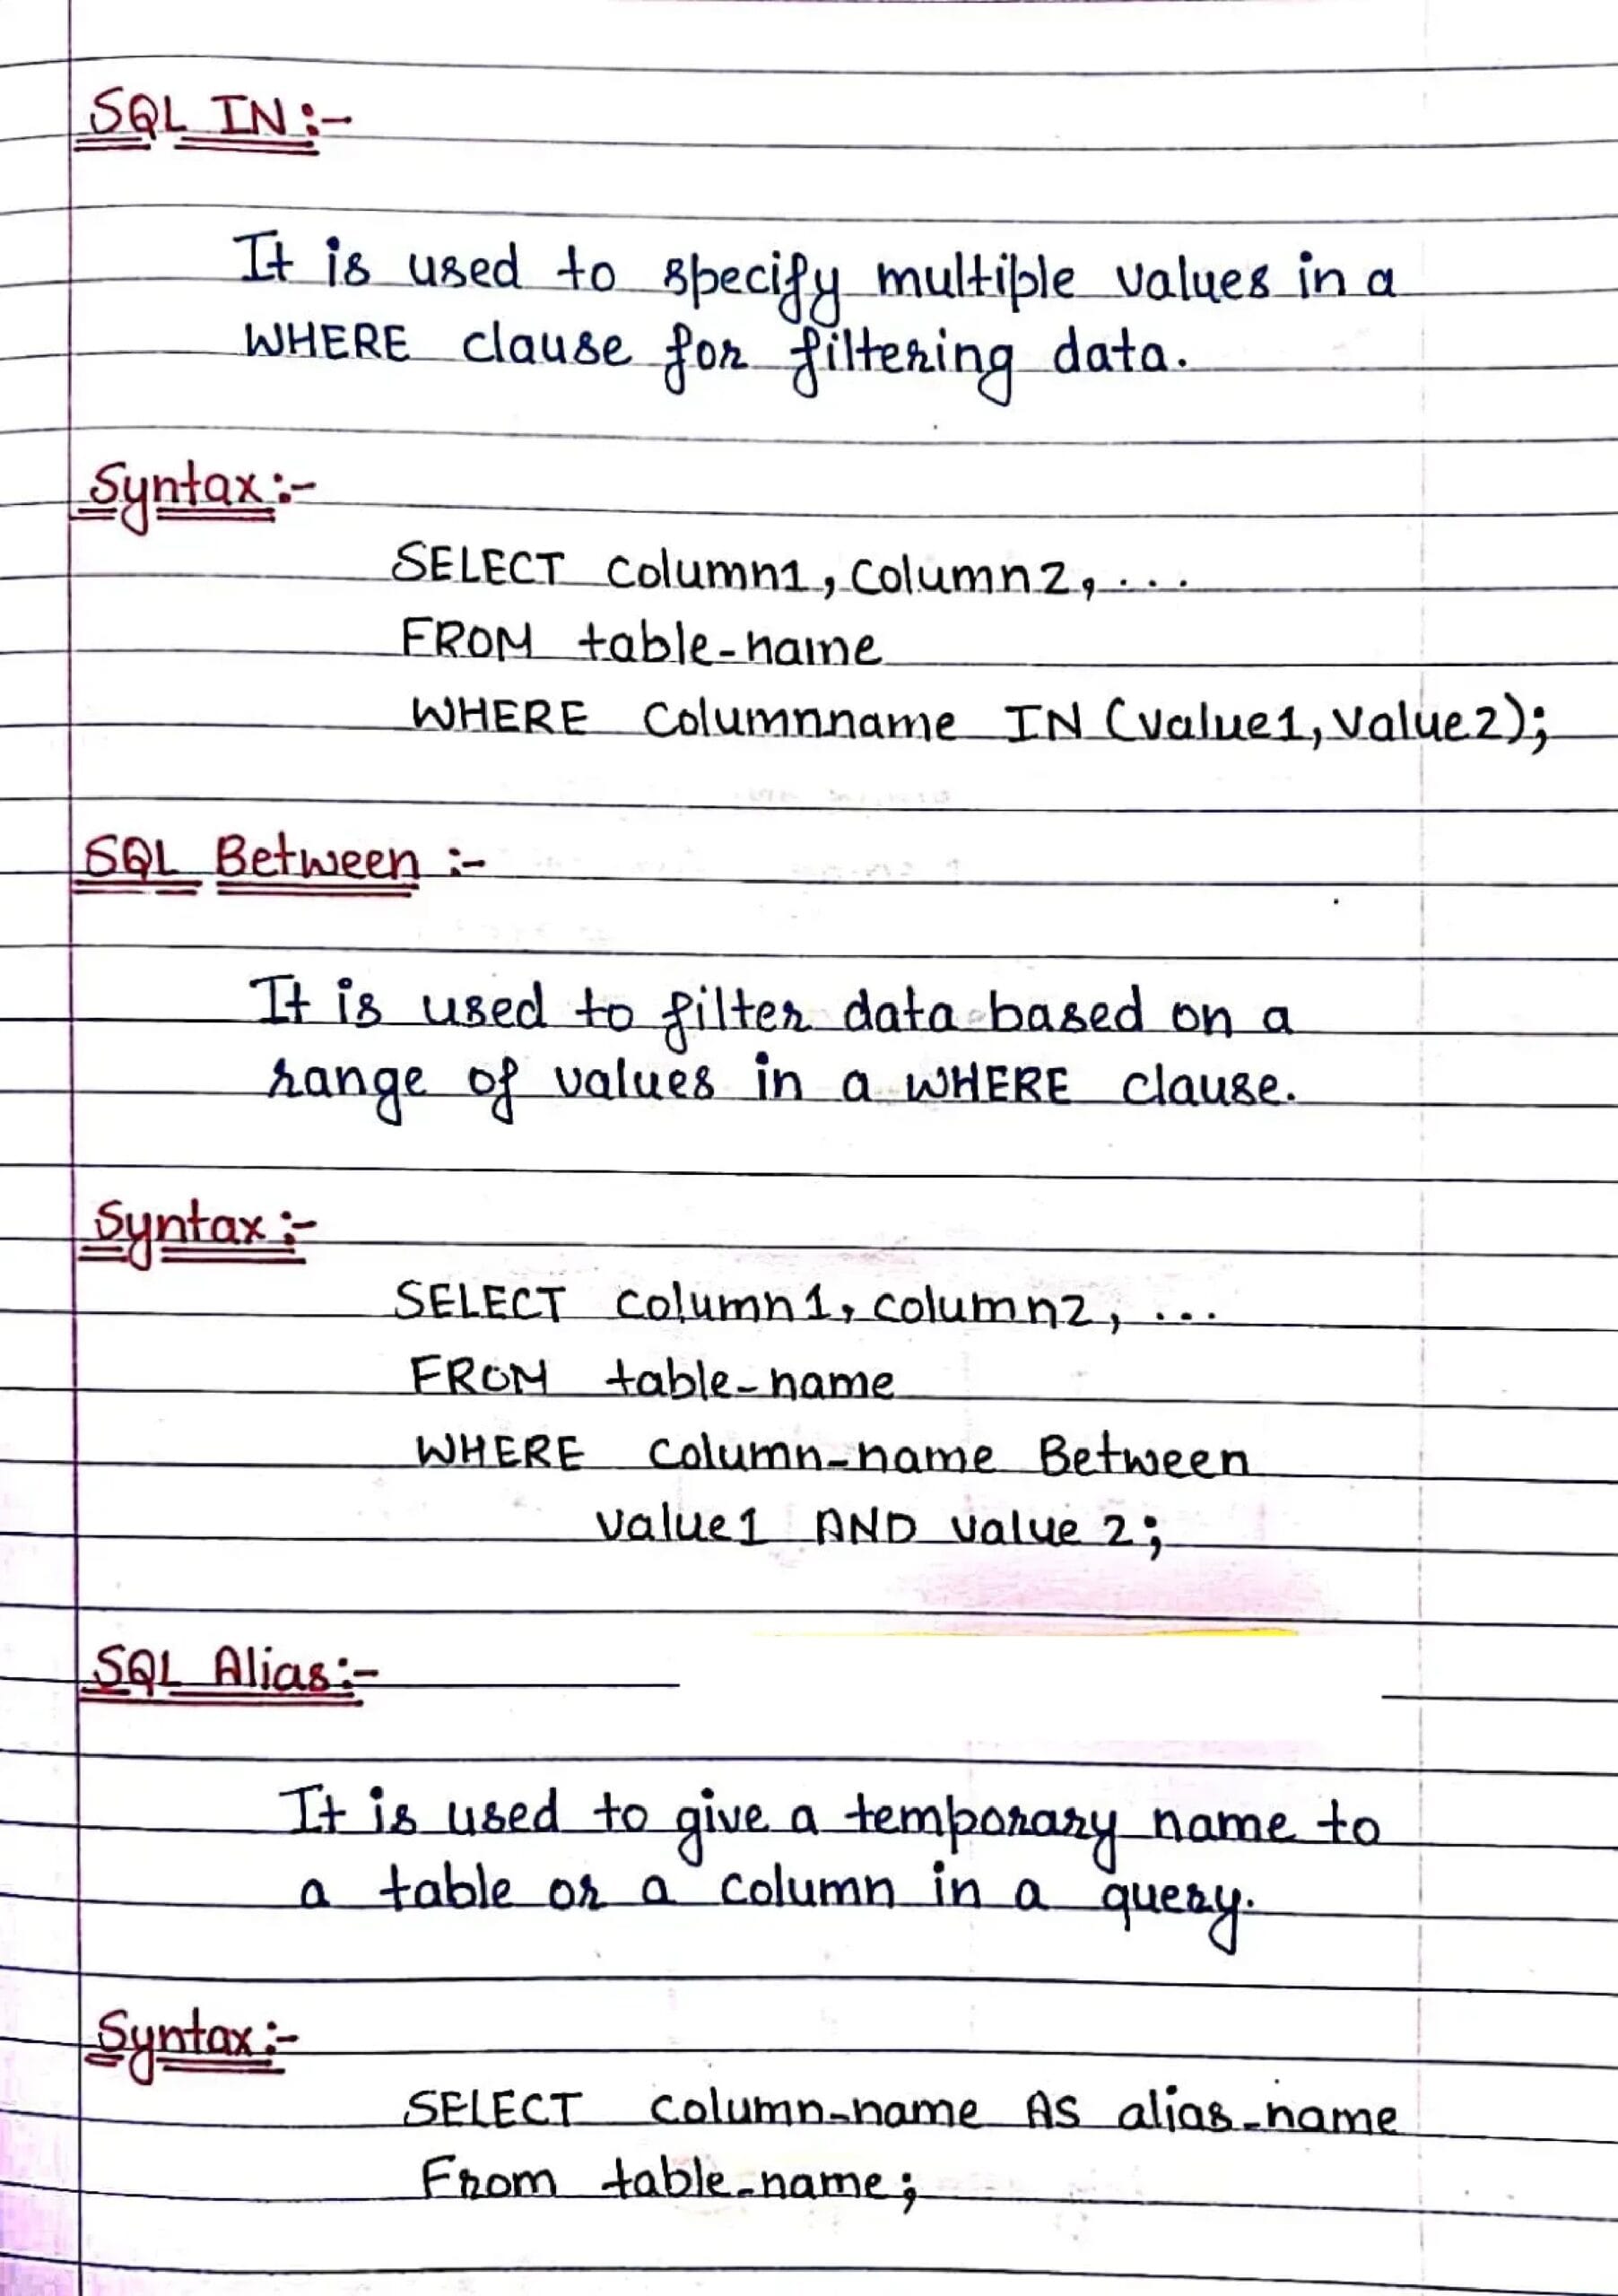 SQL IN :-
It is used to specify multiple values in a
WHERE clause for filtering data.
Syntax :-
SELECT column1, column2, ...
FROM table-name
WHERE Columnname IN (value1, value2);
SQL Between :-
It is used to filter data based on a
range of values in a WHERE clause.
Syntax :-
SELECT column1, column2, ...
FROM table-name
WHERE column-name Between
value1 AND value 2;
SQL Alias :-
It is used to give a temporary name to
a table or a column in a query.
Syntax :-
SELECT column-name AS alias-name
From table-name;